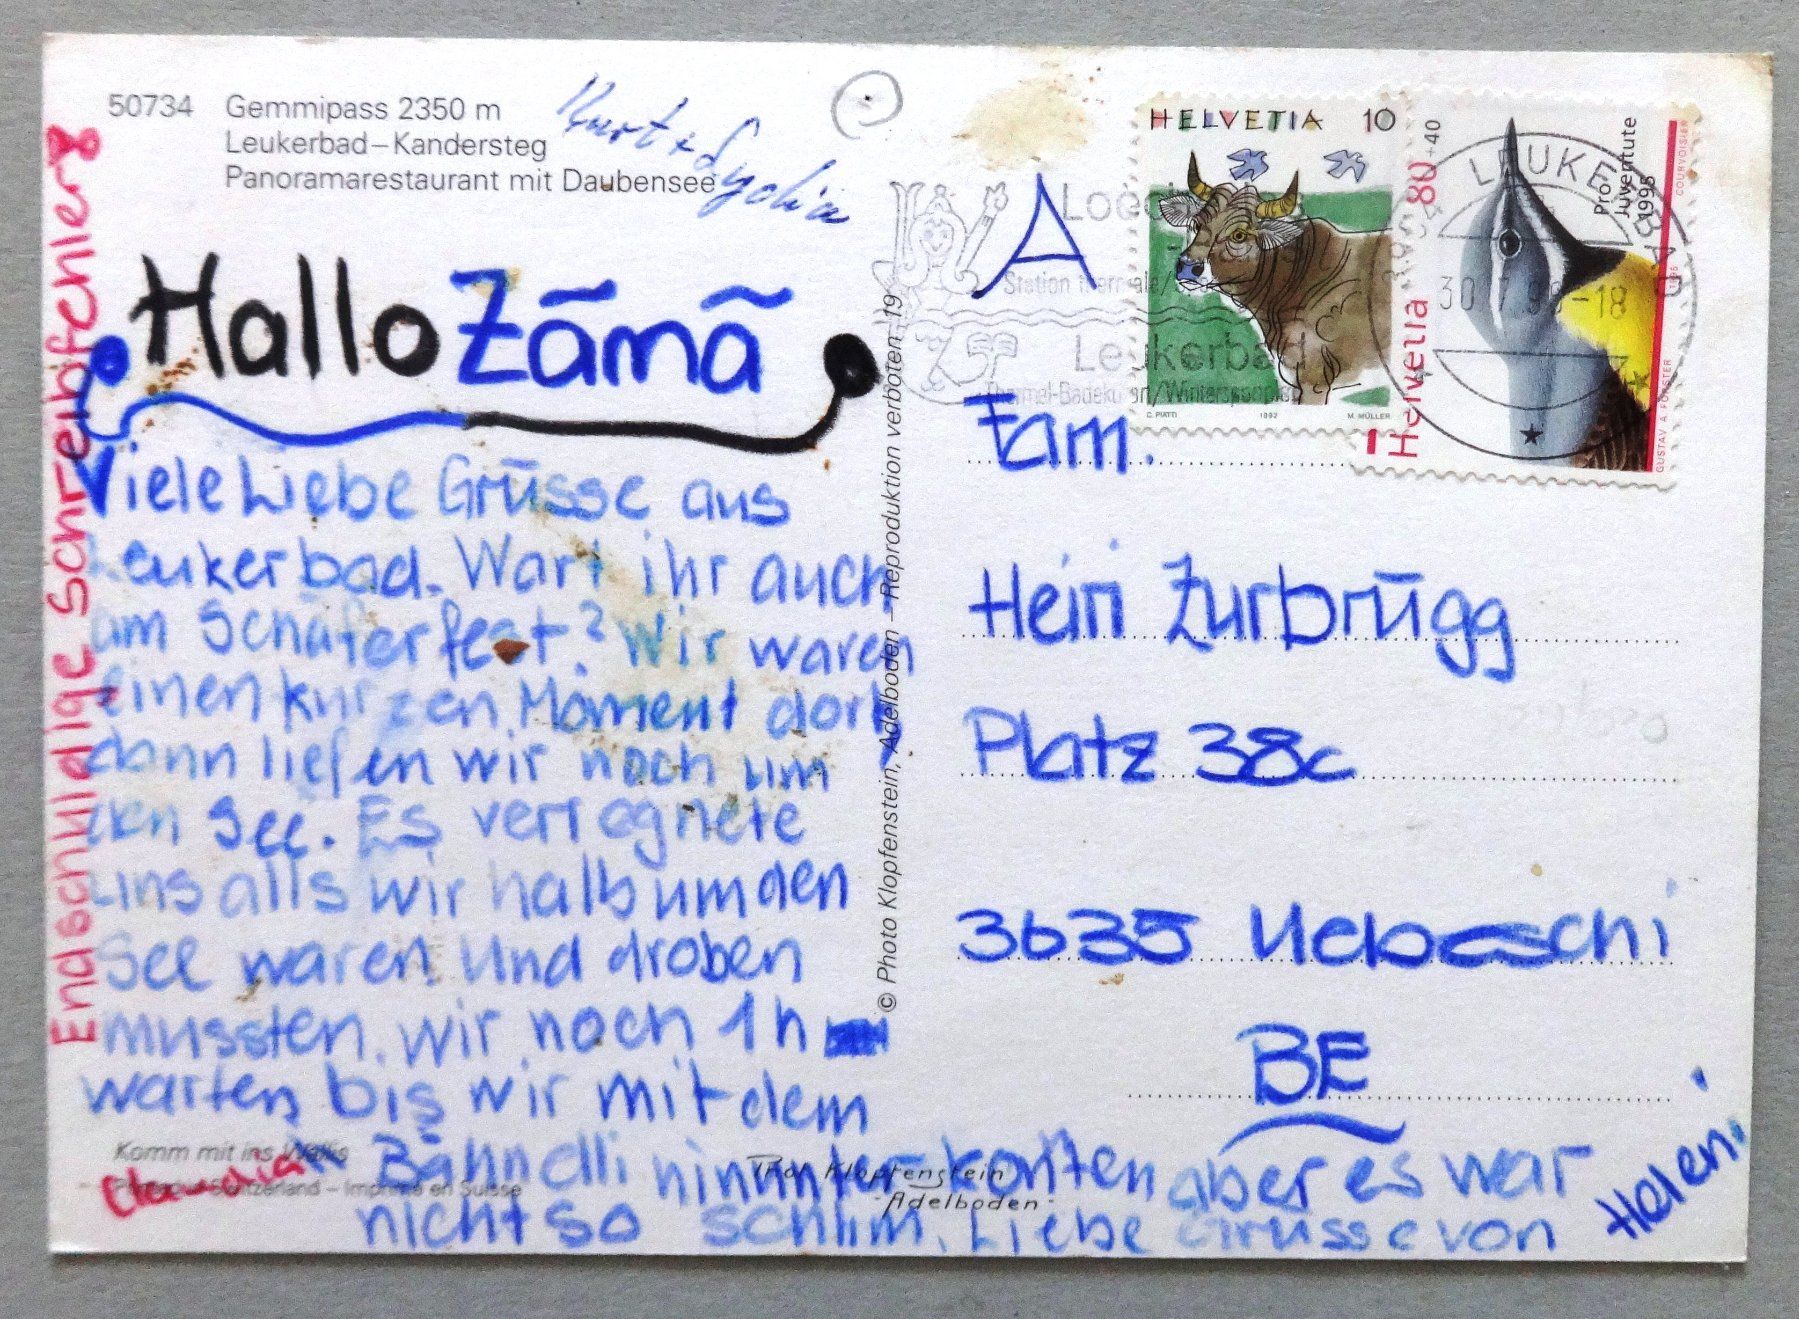 50734 Gemmipass 2350 m
Leukerbad–Kandersteg
Panoramarestaurant mit Daubensee
Kurt + Sylvia
Hallo Zämä
Viele Liebe Grüsse aus
Leukerbad. Wart ihr auch
am Schäferfest? Wir waren
einen kurzen Moment dort
dann liefen wir noch um
den See. Es verregnete
uns alls wir halb um den
See waren. Und droben
mussten wir noch 1h
warten bis wir mit dem
Bähndli hinunter konten aber es war
nicht so schlim. Liebe Grüsse von
Heleni
Claudia
Endschuldige Schreibfehler
Komm mit ins Wallis
Printed in Switzerland – Imprimé en Suisse
Phot. Klopfenstein
- Adelboden -
© Photo Klopfenstein, Adelboden – Reproduktion verboten 19
A
HELVETIA 10
C. PIATTI 1992 M. MÜLLER
Helvetia 80+40
Pro
Juventute
1995
COURVOISIER
GUSTAV A. FORSTER
LEUKERBAD
30.7.96-18
Station thermale
Leukerbad
Thermal-Badekuren/Wintersportplatz
Fam.
Heiri Zurbrügg
Platz 38c
3635 Uebeschi
BE